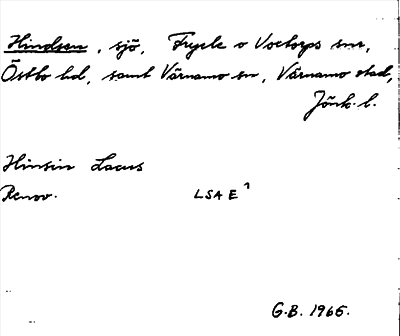 Hindsen, sjö, Fryele o Voxtorps snr,
Östbo hd, samt Värnamo sn, Värnamo stad,
Jönk. l.
Hinsin Lacus
Renov. LSA E 1
G.B. 1965.